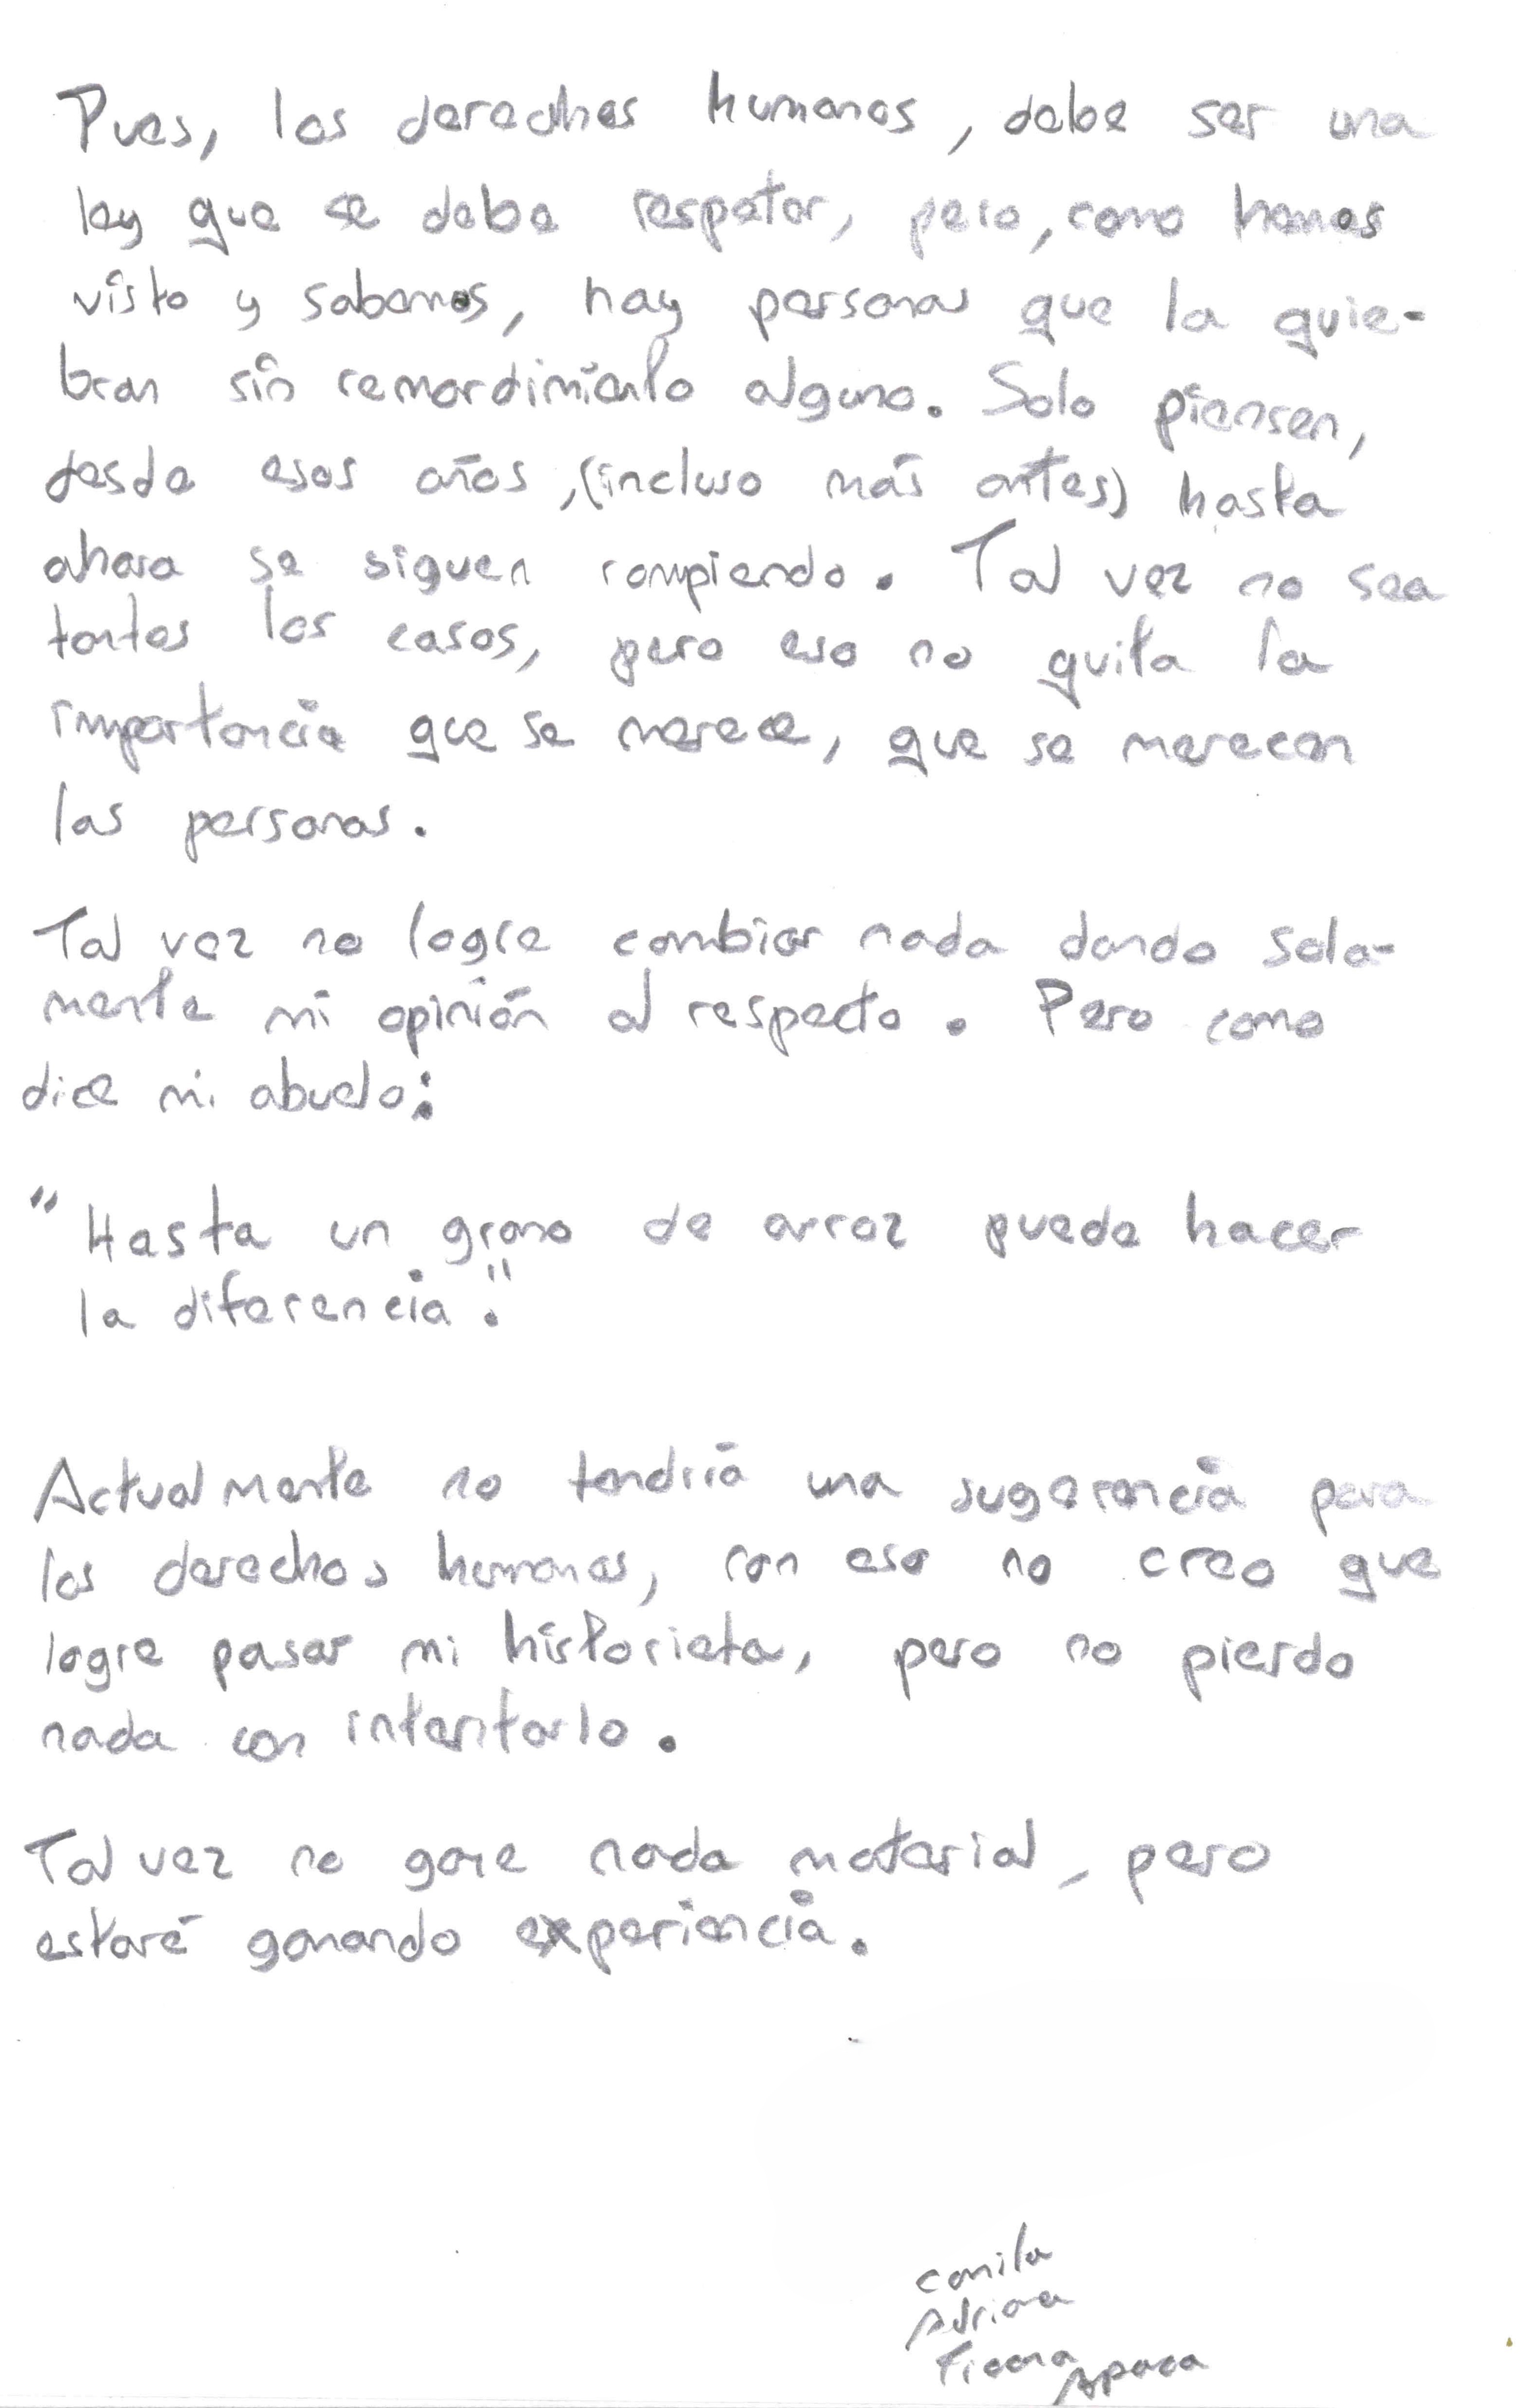 Pues, los derechos humanos, debe ser una
ley que se debe respetar, pero, como hemos
visto y sabemos, hay personas que la quie-
bran sin remordimiento alguno. Solo piensen,
desde esos años, (incluso más antes) hasta
ahora se siguen rompiendo. Tal vez no sea
tantos los casos, pero eso no quita la
importancia que se merece, que se merecen
las personas.
Tal vez no logre cambiar nada dando sola-
mente mi opinión al respecto. Pero como
dice mi abuelo:
"Hasta un grano de arroz puede hacer
la diferencia."
Actualmente no tendría una sugerencia para
los derechos humanos, con eso no creo que
logre pasar mi historieta, pero no pierdo
nada con intentarlo.
Tal vez no gane nada material, pero
estaré ganando experiencia.
Camila
Adriana
Ticona Apaza